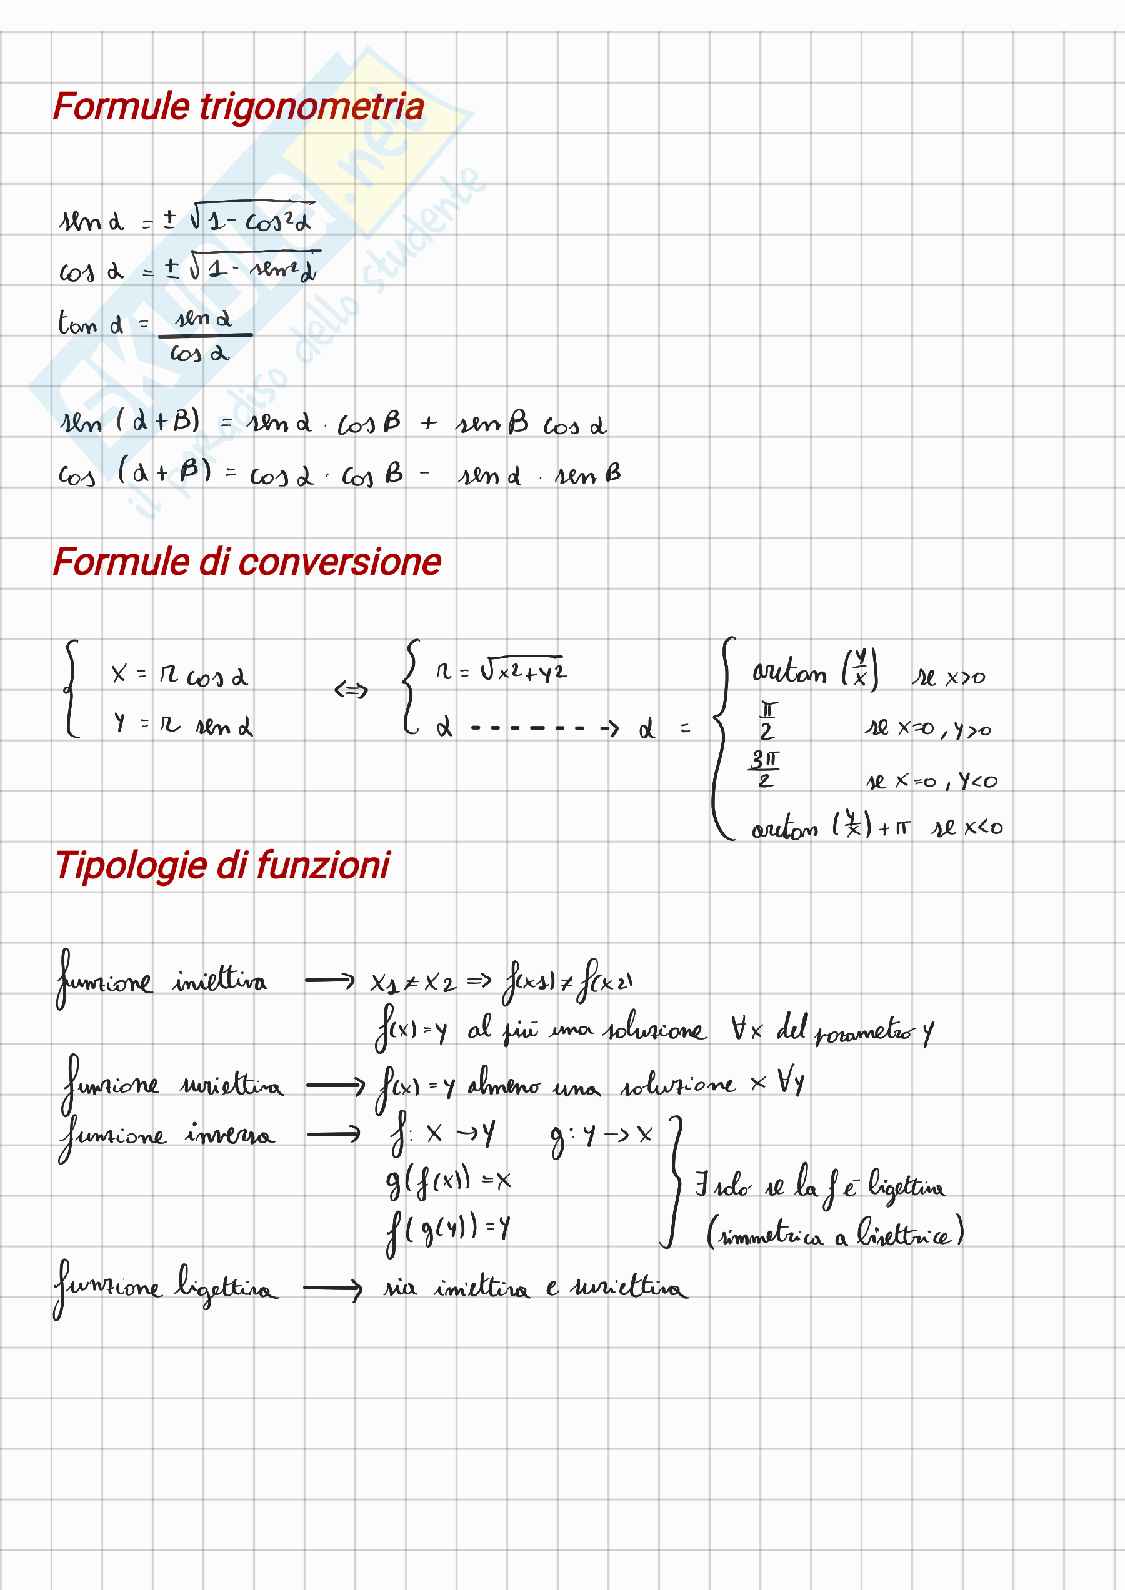 Formule trigonometria
skuola.net
il paradiso dello studente
sen α = ± √1 - cos²α
cos α = ± √1 - sen²α
tan α = sen α / cos α
sen (α + β) = sen α · cos β + sen β cos α
cos (α + β) = cos α · cos β - sen α · sen β
Formule di conversione
{ x = r cos α ⇔ { r = √x²+y² { arctan (y/x) se x>0
y = r sen α α - - - - - - -> α = π/2 se x=0, y>0
3π/2 se x=0, y<0
arctan (y/x) + π se x<0
Tipologie di funzioni
funzione iniettiva → x1 ≠ x2 => f(x1) ≠ f(x2)
f(x) = y al più una soluzione ∀x del parametro y
funzione suriettiva → f(x) = y almeno una soluzione x ∀y
funzione inversa → f: x → y g: y → x
g(f(x)) = x } ∃ solo se la f è bigettiva
f(g(y)) = y (simmetrica a bisettrice)
funzione bigettiva → sia iniettiva e suriettiva